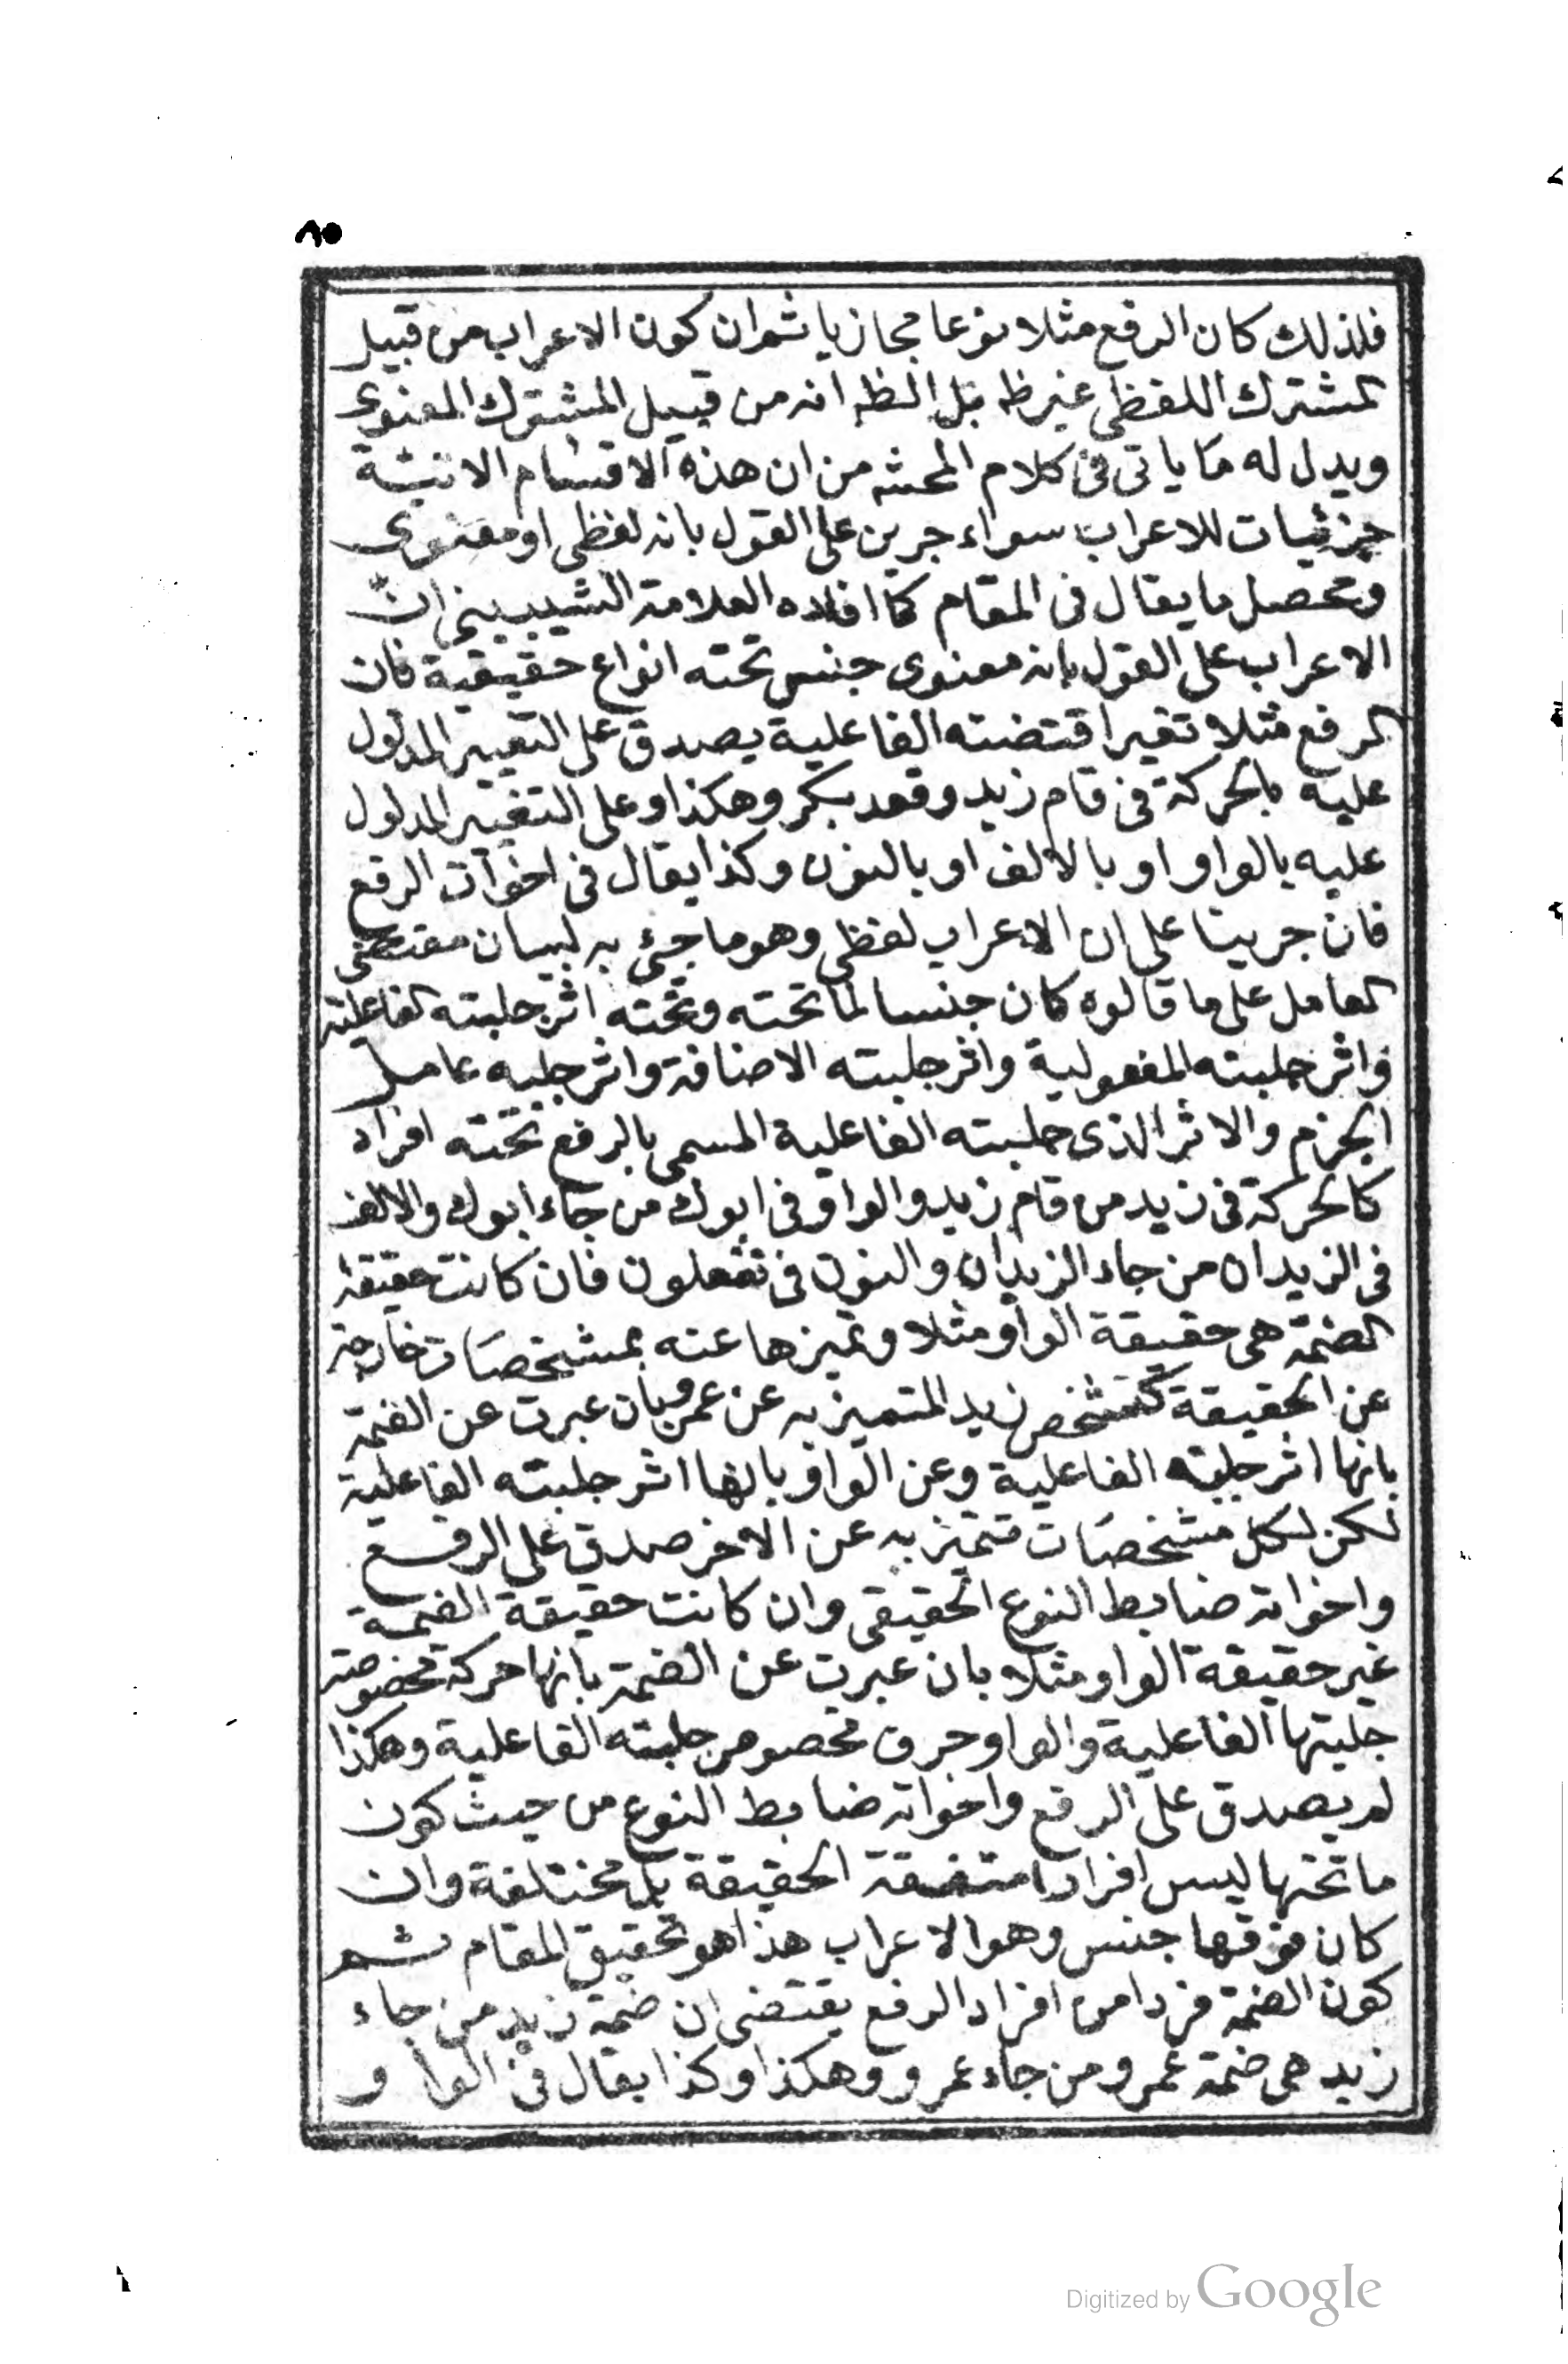 ٨٥
فلذلك كان الرفع مثلا نوعا مجازيا ثم ان كون الاعراب من قبيل
المشترك اللفظي غير ظه بل الظه انه من قبيل المشترك المعنوى
ويدل له ما ياتى فى كلام المحشه من ان هذه الاقسام الاتية
جزئيات للاعراب سواء جرين على القول بانه لفظى او معنوى
ومحصل ما يقال فى المقام كما افاده العلامة الشيبينى ان
الاعراب على القول بانه معنوى جنس تحته انواع حقيقية فان
الرفع مثلا تغير اقتضته الفاعلية يصدق على التغيير المدلول
عليه بالحركة فى قام زيد وقعد بكر وهكذا وعلى التغيير المدلول
عليه بالواو او بالالف او بالنون وكذا يقال فى اخوات الرفع
فان جرينا على ان الاعراب لفظى وهو ما جئ به لبيان مقتضى
العامل على ما قالوه كان جنسا لما تحته وتحته اثر جلبته الفاعلية
واثر جلبته المفعولية واثر جلبته الاضافة واثر جلبه عامل
الجزم والاثر الذى جلبته الفاعلية المسمى بالرفع تحته افراد
كالحركة فى زيد من قام زيد والواو فى ابوك من جاء ابوك والالف
فى الزيدان من جاء الزيدان والنون فى تفعلون فان كانت حقيقة
الضمة هى حقيقة الواو مثلا وتميزها عنه بمشخصات خارجة
عن الحقيقة كتشخص زيد المتميز به عن عمرو بان عبرت عن الضمة
بانها اثر جلبته الفاعلية وعن الواو بانها اثر جلبته الفاعلية
لكن لكل مشخصات تتميز به عن الاخر صدق على الرفع
واخواته ضابط النوع الحقيقى وان كانت حقيقة الضمة
غير حقيقة الواو مثلا بان عبرت عن الضمة بانها حركة مخصوصة
جلبتها الفاعلية والواو حرف مخصوص جلبته الفاعلية وهكذا
لم يصدق على الرفع واخواته ضابط النوع من حيث كون
ما تحتها ليس افرادا متفقة الحقيقة بل مختلفة وان
كان فوقها جنس وهو الاعراب هذا هو تحقيق المقام ثم
كون الضمة فردا من افراد الرفع يقتضى ان ضمة زيد من جاء
زيد هى ضمة عمرو من جاء عمرو وهكذا وكذا يقال فى الواو
Digitized by Google